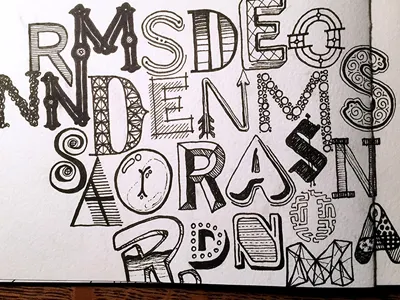 RMSDEO
NNDENMS
SAORASN
R.DNMA